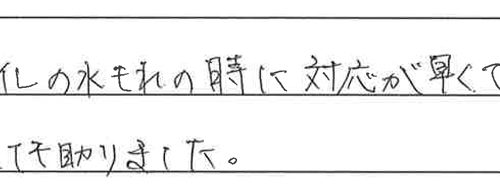 イレの水もれの時に対応が早くて
ても助りました。